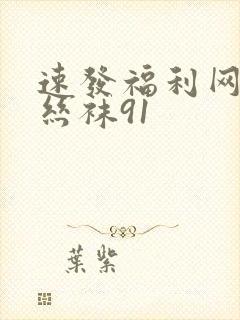 速發福利网
丝袜91
葉紫